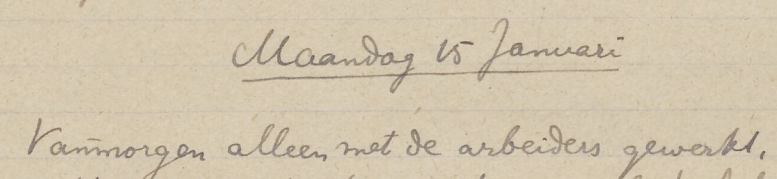 Maandag 15 Januari
Vanmorgen alleen met de arbeiders gewerkt.